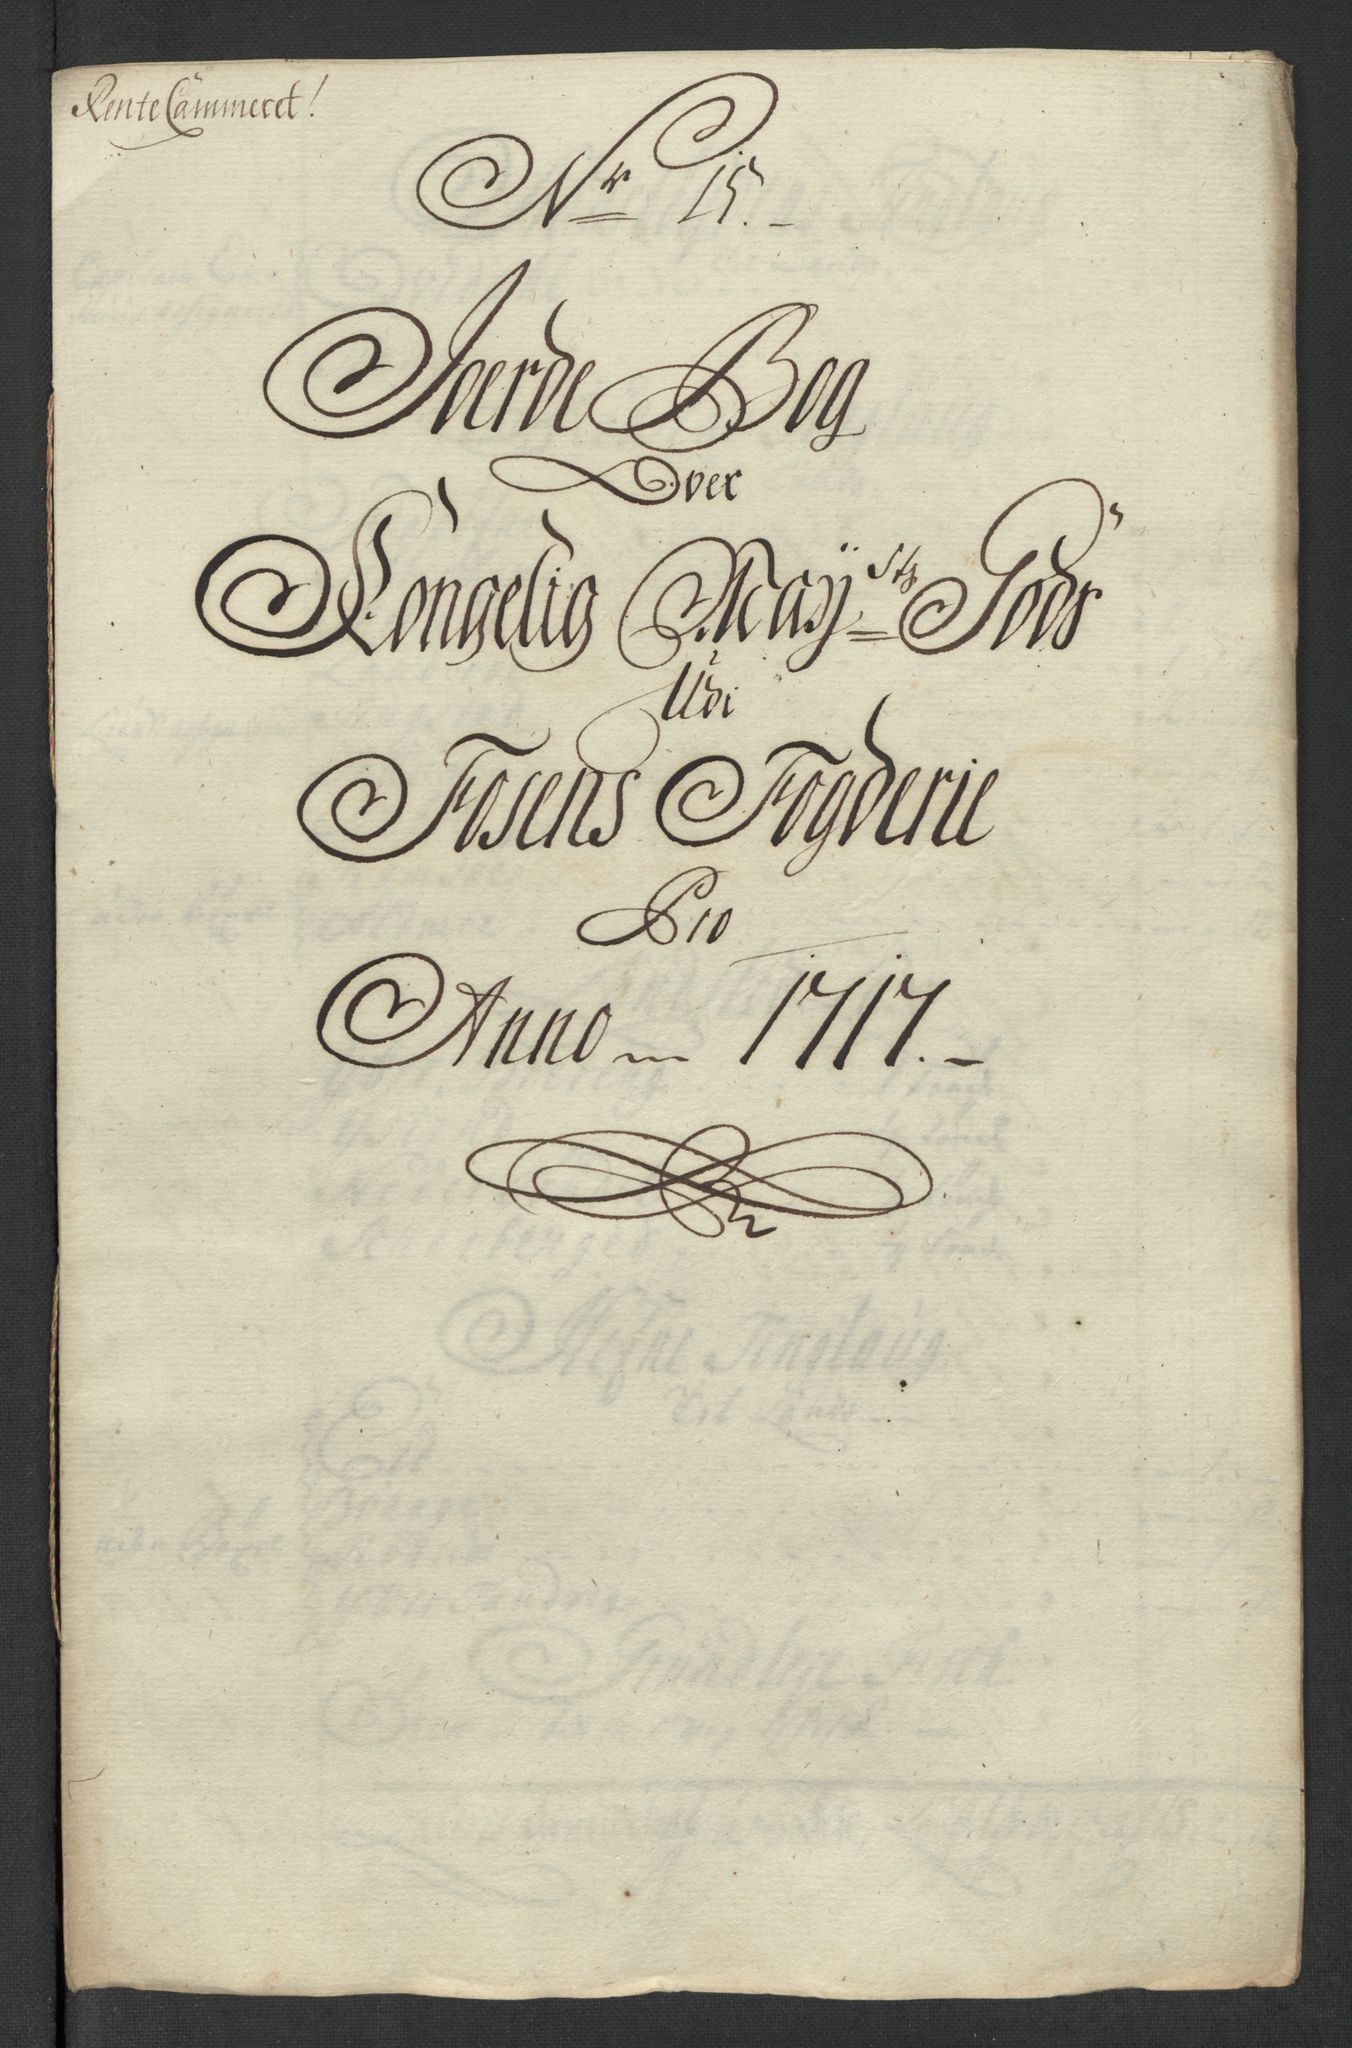 Rente Cammeret!
Nr 15.
Joerde Bog
Over
Kongelig Mayÿsts Gods
Udi
Fosens Fogderie
Pro
Anno 1717.